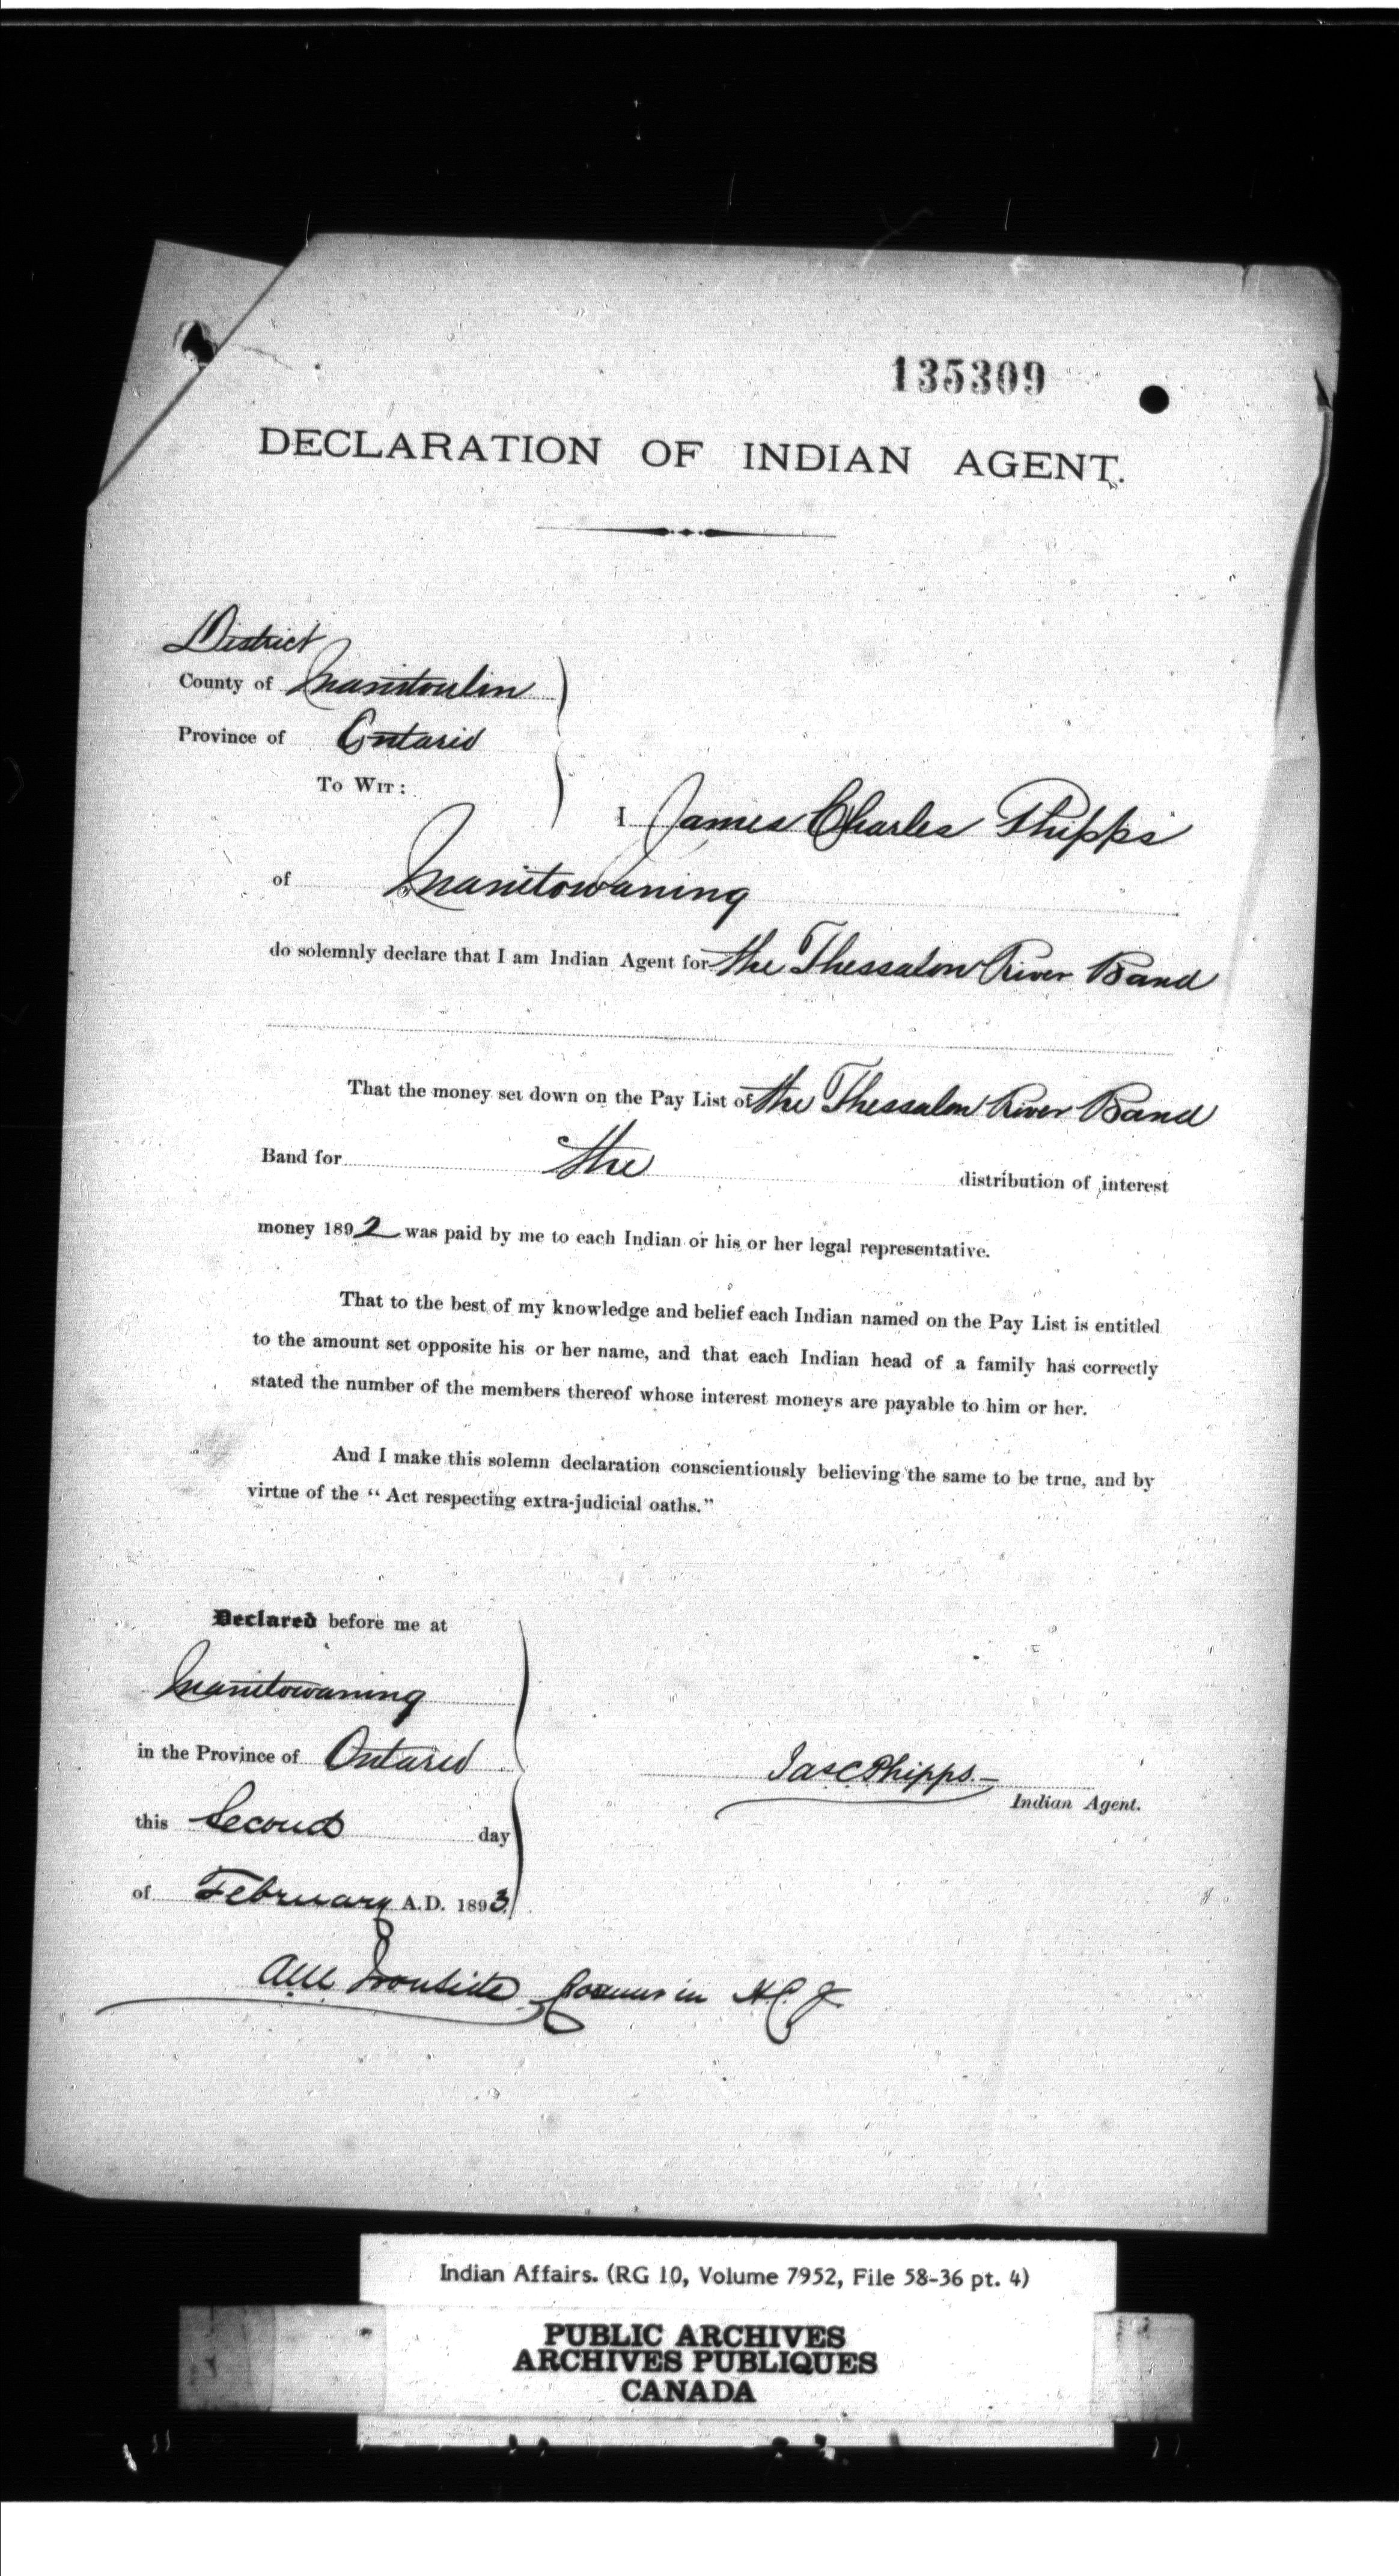 135309
DECLARATION OF INDIAN AGENT.
District
County of Manitoulin
Province of Ontario
To Wit:
I James Charles Phipps
of Manitowaning
do solemnly declare that I am Indian Agent for the Thessalon River Band
That the money set down on the Pay List of the Thessalon River Band
Band for the distribution of interest
money 1892 was paid by me to each Indian or his or her legal representative.
That to the best of my knowledge and belief each Indian named on the Pay List is entitled
to the amount set opposite his or her name, and that each Indian head of a family has correctly
stated the number of the members thereof whose interest moneys are payable to him or her.
And I make this solemn declaration conscientiously believing the same to be true, and by
virtue of the “ Act respecting extra-judicial oaths.”
Declared before me at
Manitowaning
in the Province of Ontario
this Second day
of February A.D. 1893
Jas C Phipps.—
Indian Agent.
Ironside Commr in H.C.J.
Indian Affairs. (RG 10, Volume 7952, File 58-36 pt. 4)
PUBLIC ARCHIVES
ARCHIVES PUBLIQUES
CANADA